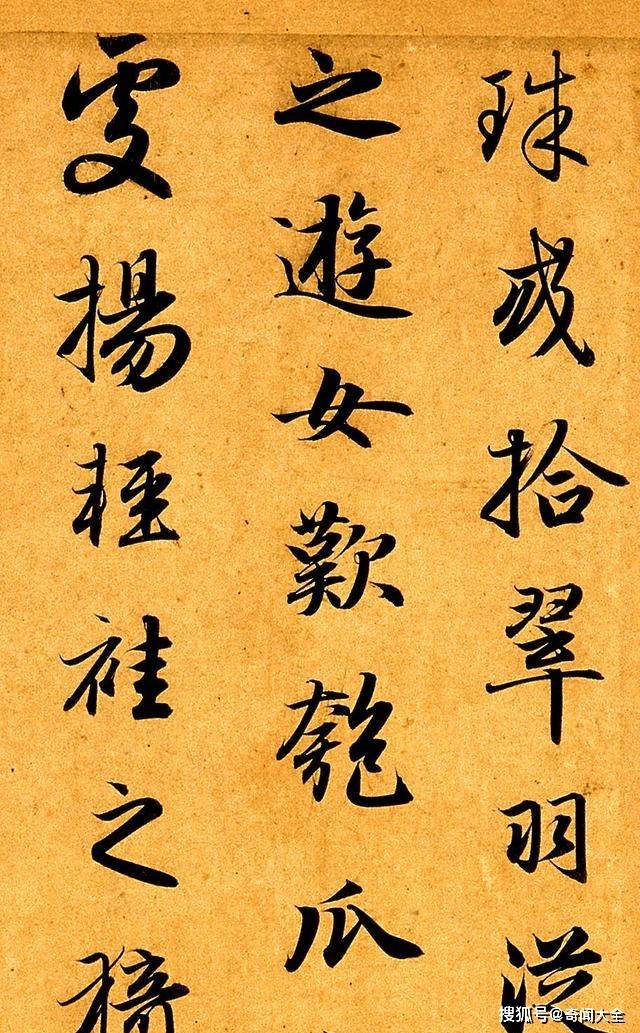 珠或拾翠羽從
之遊女歎匏瓜
處揚輕袿之猗
搜狐号@奇闻大全